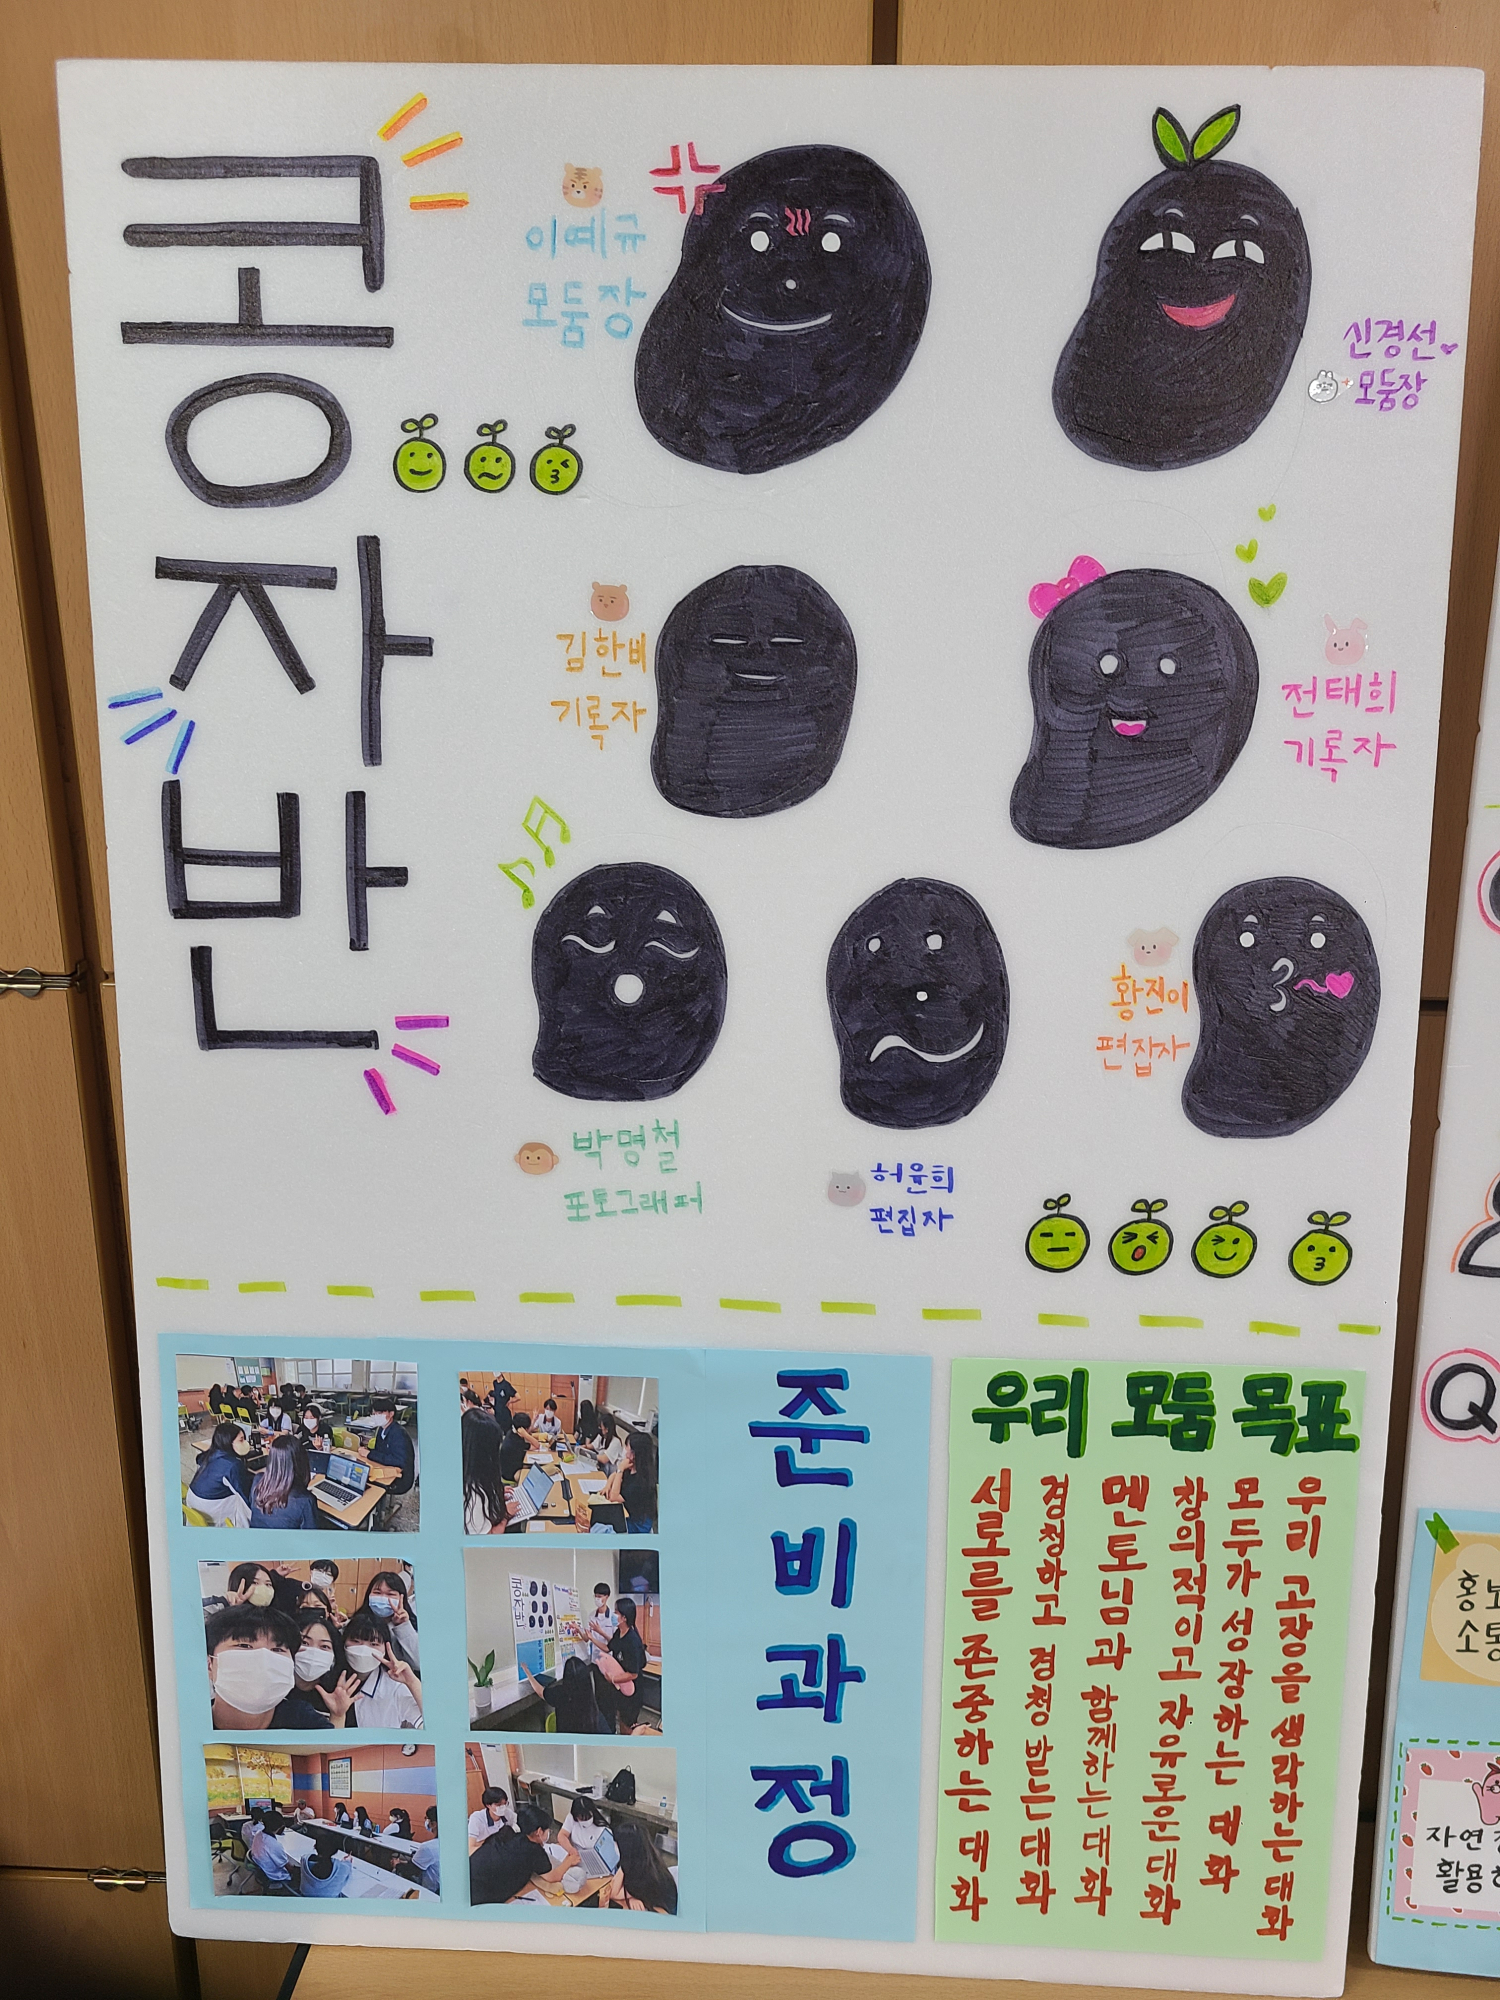 콩자반
이예규
모둠장
신경선
모둠장
김한비
기록자
전태희
기록자
박명철
포토그래퍼
허윤희
편집자
황진이
편집자
준비과정
우리 모둠 목표
서로를 존중하는 대화
경청하고 경청 받는 대화
멘토님과 함께하는 대화
창의적이고 자유로운 대화
모두가 성장하는 대화
우리 고장을 생각하는 대화
Q
홍보
소통
자연
활용